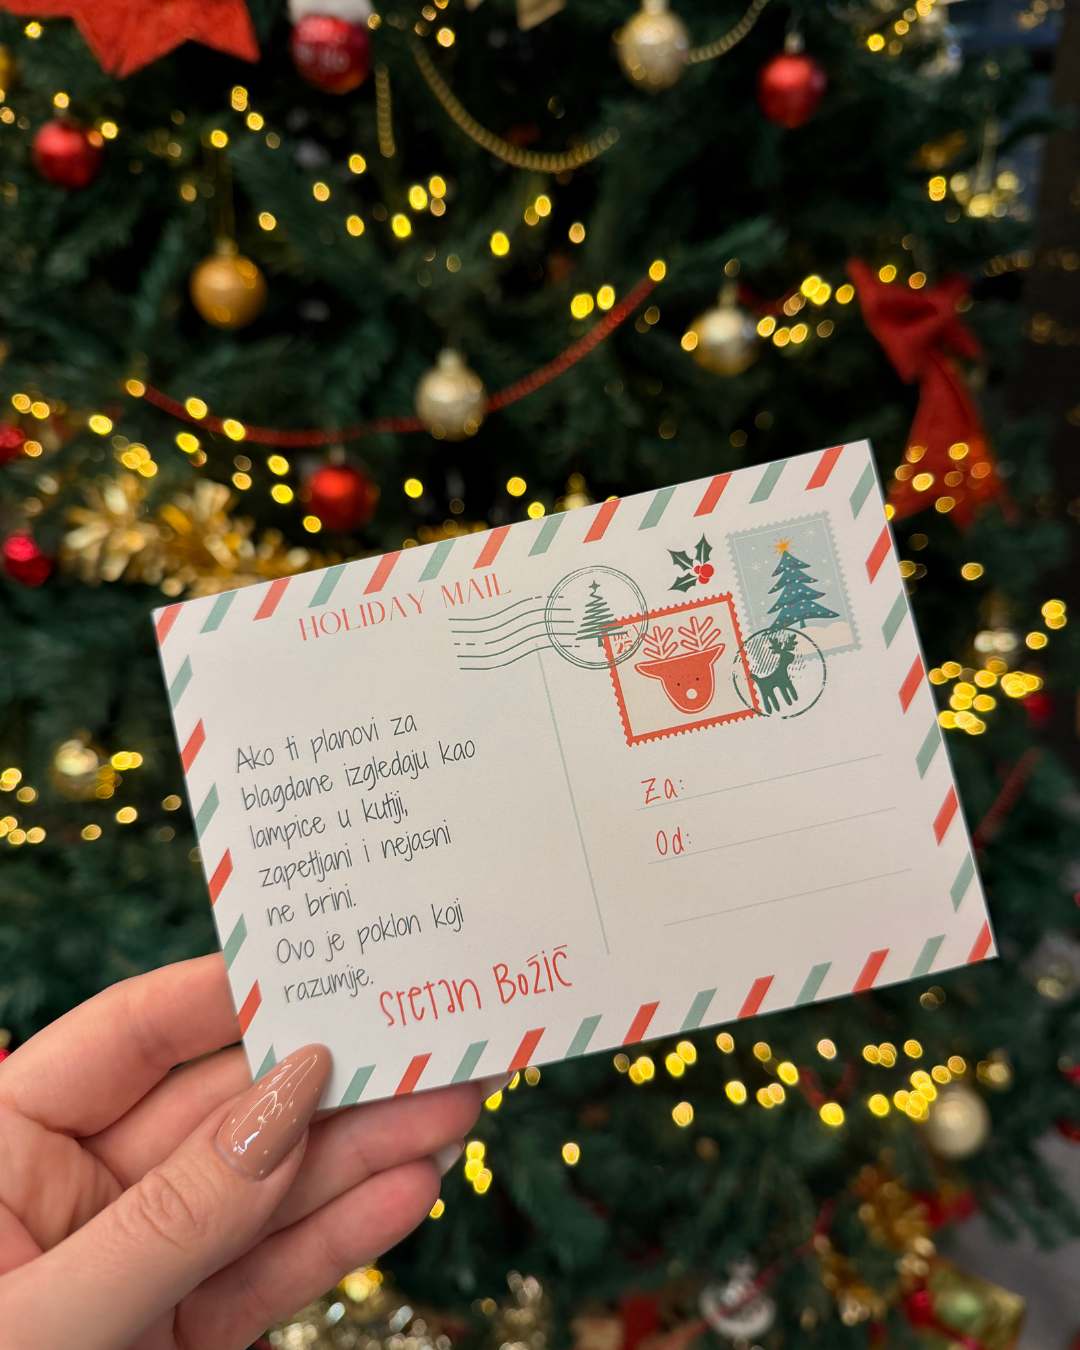 HOLIDAY MAIL
Ako ti planovi za
blagdane izgledaju kao
lampice u kutiji,
zapetljani i nejasni
ne brini.
Ovo je poklon koji
razumije.
Sretan Božić
Za:
Od: